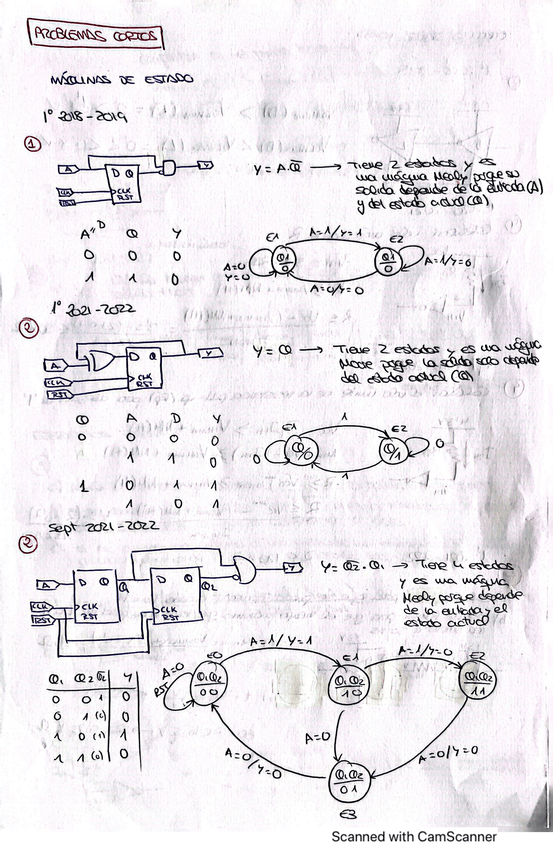 PROBLEMAS CORTOS
MÁQUINAS DE ESTADO
1º 2018-2019
1
A
D Q
CLK
RST
Y
Y = A·Q̅ → Tiene 2 estados y es
una máquina Mealy porque su
salida depende de la entrada (A)
y del estado actual (Q).
A"D Q Y
0 0 0
1 1 0
E1
A=1/Y=1
E2
A=0
Y=0
Q1
0
Q1
0
A=1/Y=0
A=0/Y=0
1º 2021-2022
2
A
D Q
CLK
RST
Y
CLK
RST
Y = Q → Tiene 2 estados y es una máquina
Moore porque la salida solo depende
del estado actual (Q)
Q A D Y
0 0 0 0
1 1 0
1 0 1 1
1 0 1
E1
1
E2
0
Q/0
Q/1
0
1
Sept 2021-2022
2
A
D Q
Q1
D Q
Q2
Y
CLK
RST
CLK
RST
CLK
RST
Y = Q̅2·Q1 → Tiene 4 estados
y es una máquina
Mealy porque depende
de la entrada y el
estado actual
Q1 Q2 Q̅2 Y
0 0 1 0
0 1 (0) 0
1 0 (1) 1
1 1 (0) 0
E0
A=1/Y=1
E1
A=1/Y=0
E2
A=0
RST
Q1Q2
0 0
Q1Q2
1 0
Q1Q2
1 1
A=0
A=0/Y=0
A=0/Y=0
Q1Q2
0 1
E3
Scanned with CamScanner